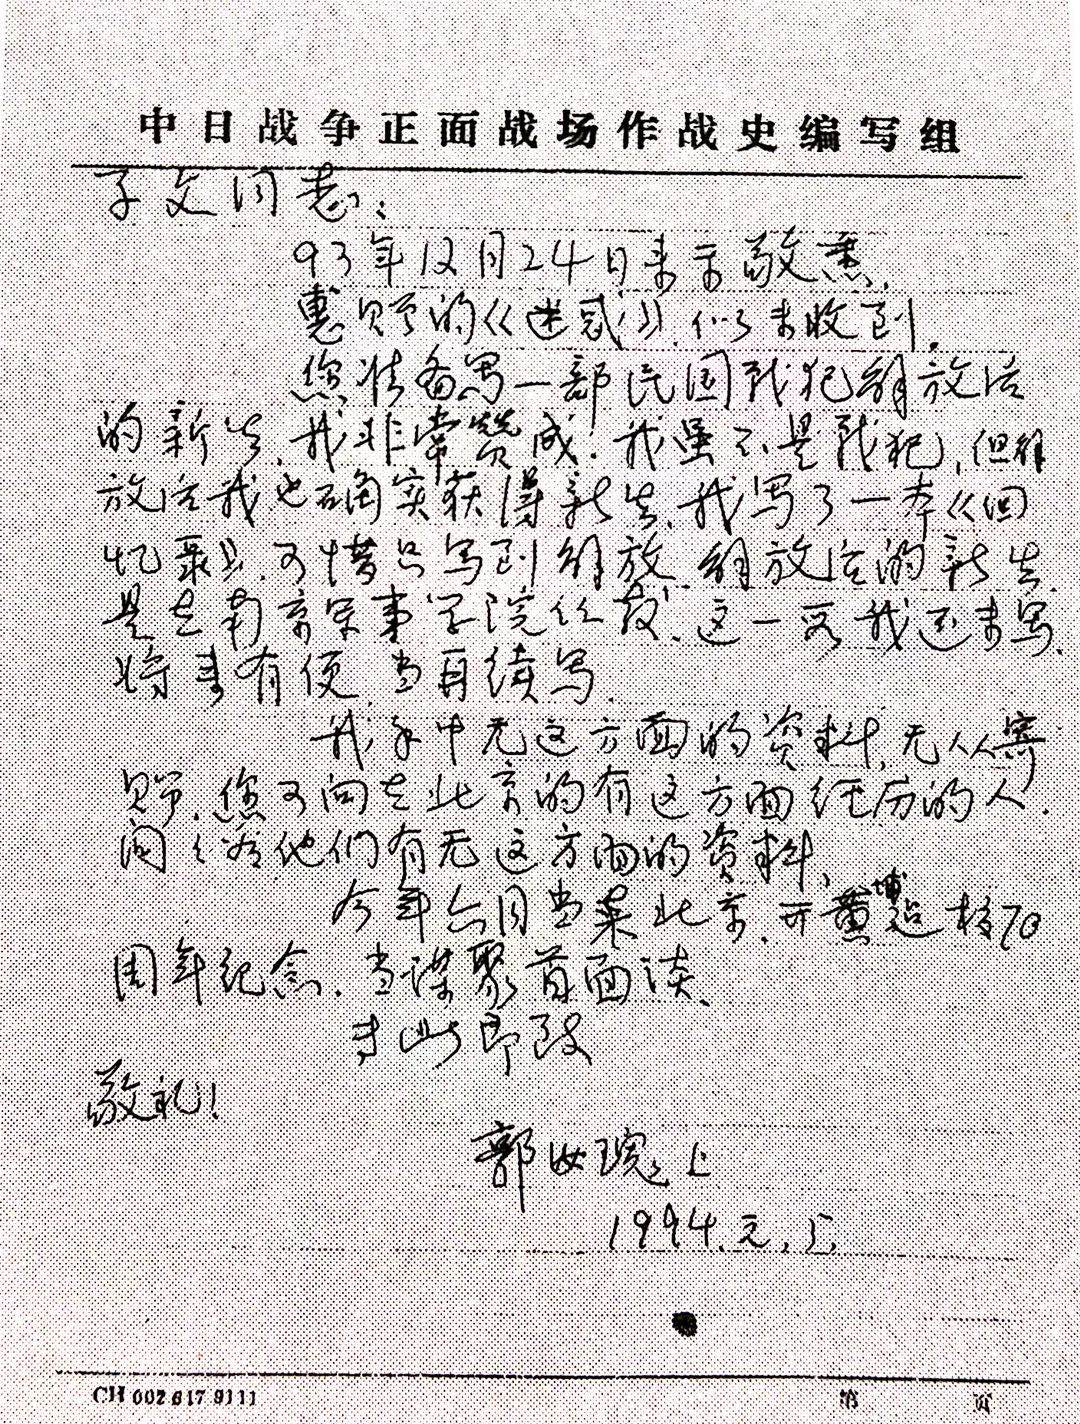 中日战争正面战场作战史编写组
子文同志：
93年12月24日来示敬悉，
惠赐的《迷惑》，似未收到。
您准备写一部民国战犯解放后
的新生，我非常赞成。我虽不是战犯，但解
放后我也确实获得新生，我写了一本《回
忆录》，可惜只写到解放，解放后的新生，
是在南京军事学院 这一段我还未写，
将来有便，当再续写。
我手中无这方面的资料，无从寄
赠，您可向在北京的有这方面经历的人，
问问看他们有无这方面的资料，
今年六月当来北京，开黄埔建校70
周年纪念，当谋聚首面谈，
专此即致
敬礼！
郭汝瑰上
1994.元.5
CH 002 617 9111
第 页